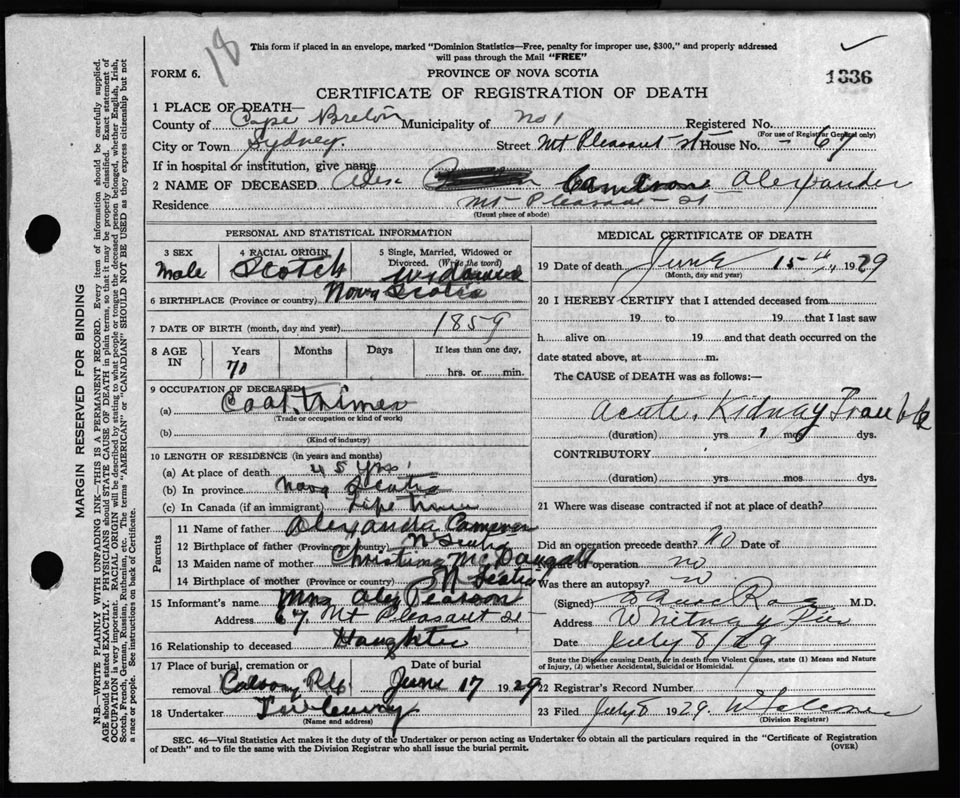 18
This form if placed in an envelope, marked "Dominion Statistics—Free, penalty for improper use, $300," and properly addressed
will pass through the Mail "FREE"
FORM 6.
PROVINCE OF NOVA SCOTIA
1336
CERTIFICATE OF REGISTRATION OF DEATH
1 PLACE OF DEATH—
County of Cape Breton Municipality of No 1 Registered No.
(For use of Registrar General only)
City or Town Sydney. Street Mt Pleasant St House No. 67
If in hospital or institution, give name
2 NAME OF DECEASED Alex Cameron Alexander
Residence Mt Pleasant St
(Usual place of abode)
PERSONAL AND STATISTICAL INFORMATION
3 SEX
male
4 RACIAL ORIGIN
Scotch
5 Single, Married, Widowed or
Divorced. (Write the word)
Widowed
6 BIRTHPLACE (Province or country) Nova Scotia
7 DATE OF BIRTH (month, day and year) 1859
8 AGE IN
Years
70
Months
Days
If less than one day,
hrs. or min.
9 OCCUPATION OF DECEASED
(a) Coal Trimer
(Trade or occupation or kind of work)
(b)
(Kind of industry)
10 LENGTH OF RESIDENCE (in years and months)
(a) At place of death 45 yrs
(b) In province Nova Scotia
(c) In Canada (if an immigrant) Life time
Parents
11 Name of father Alexander Cameron
12 Birthplace of father (Province or country) N Scotia
13 Maiden name of mother Christina McDougall
14 Birthplace of mother (Province or country) N Scotia
15 Informant's name Mrs Alex Pearson
Address 67 Mt Pleasant St
16 Relationship to deceased Daughter
17 Place of burial, cremation or
removal
Date of burial
June 17 1929
18 Undertaker
(Name and address)
MEDICAL CERTIFICATE OF DEATH
19 Date of death June 15th 1929
(Month, day and year)
20 I HEREBY CERTIFY that I attended deceased from
19 to 19 that I last saw
h alive on 19 and that death occurred on the
date stated above, at m.
The CAUSE of DEATH was as follows:—
Acute Kidney Trouble
(duration) yrs 1 mos dys.
CONTRIBUTORY
(duration) yrs mos dys.
21 Where was disease contracted if not at place of death?
Did an operation precede death? No Date of
Nature of operation no
Was there an autopsy? no
(Signed) M.D.
Address Whitney Pier
Date July 8/29
State the Disease causing Death, or in death from Violent Causes, state (1) Means and Nature
of Injury, (2) whether Accidental, Suicidal or Homicidal.
22 Registrar's Record Number
23 Filed July 8 1929.
(Division Registrar)
SEC. 46—Vital Statistics Act makes it the duty of the Undertaker or person acting as Undertaker to obtain all the particulars required in the "Certificate of Registration
of Death" and to file the same with the Division Registrar who shall issue the burial permit.
(OVER)
MARGIN RESERVED FOR BINDING
N.B.—WRITE PLAINLY WITH UNFADING INK—THIS IS A PERMANENT RECORD. Every item of information should be carefully supplied.
AGE should be stated EXACTLY. PHYSICIANS should STATE CAUSE OF DEATH in plain terms, so that it may be properly classified. Exact statement of
OCCUPATION is very important. RACIAL ORIGIN will be described by stating to what people or tongue the deceased person belonged, whether English, Irish,
Scotch, French, German, Russian, Ruthenian, etc. The terms "AMERICAN" or "CANADIAN" SHOULD NOT BE USED as they express citizenship but not
a race or people. See instructions on back of Certificate.